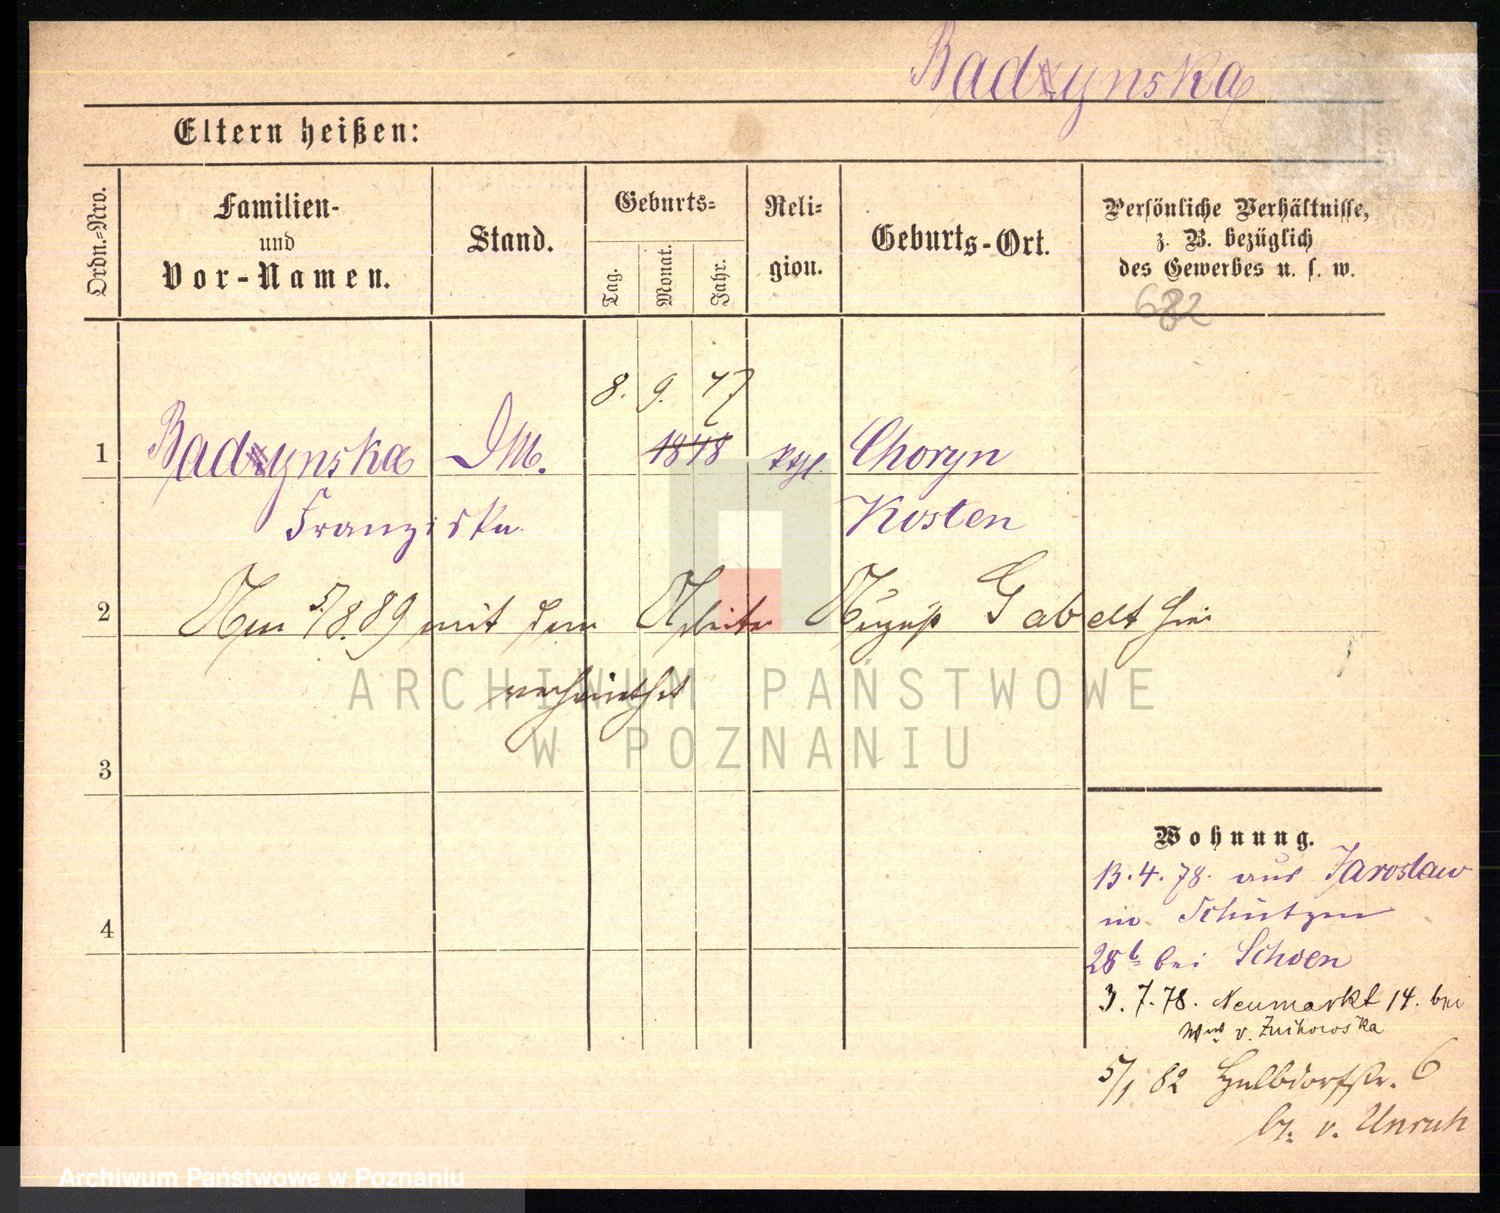 Badzynska
Eltern heißen:
Ordn.-Nro.
Familien-
und
Vor-Namen.
Stand.
Geburts-
Tag.
Monat.
Jahr.
Reli-
gion.
Geburts-Ort.
Persönliche Verhältnisse,
z. B. bezüglich
des Gewerbes u. s. w.
682
8. 9. 47
1 Badzynska DM. 1848 ktzl. Choryn
Franziska Kosten
2 Am 5/8.89 mit dem Arbeiter August Gabelt hier
verheirathet
3
Wohnung.
13.4.78. aus Jaroslaw
in Schützen
28b bei Schoen
4
3.7.78. Neumarkt 14. bei
Wwe v.
5/1 82 Halbdorfstr. 6
b. v. Unruh
ARCHIWUM PAŃSTWOWE
W POZNANIU
Archiwum Państwowe w Poznaniu